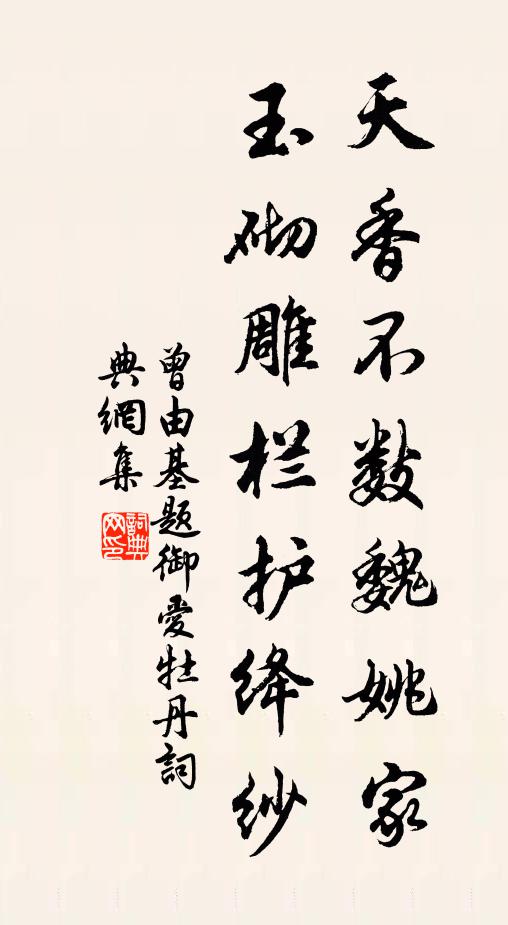 天香不数魏姚家
玉砌雕栏护绛纱
曾由基题御爱牡丹詞
典網集
詞典
网印